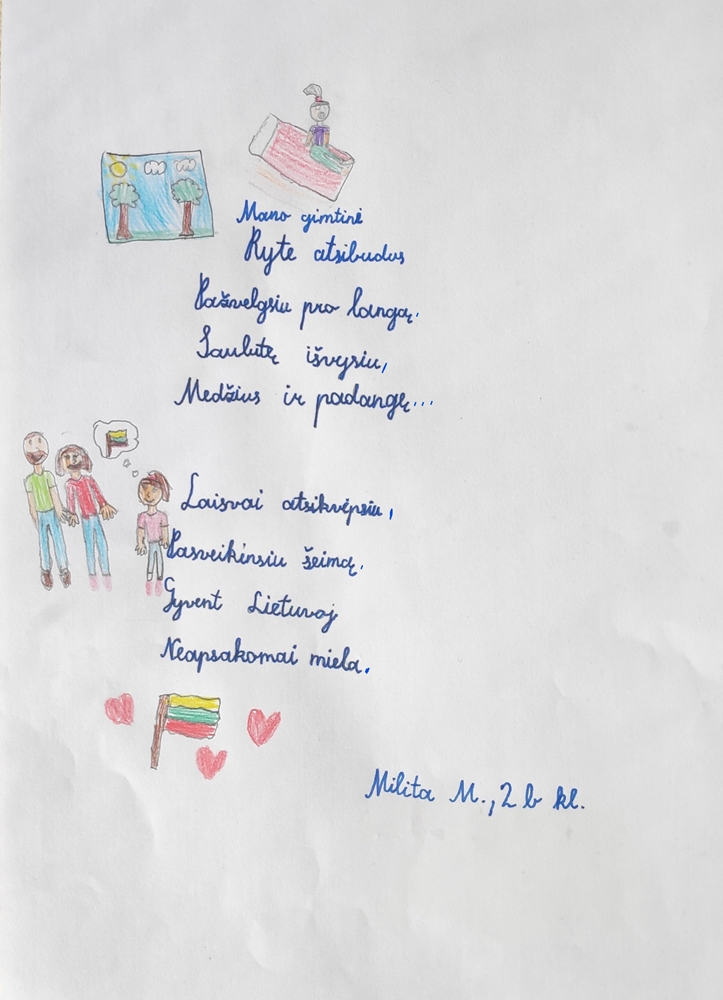 Mano gimtinė
Ryte atsibudus
Pažvelgsiu pro langą.
Saulutę išvysiu,
Medžius ir padangę...
Laisvai atsikvėpsiu,
Pasveikinsiu šeimą.
Gyvent Lietuvoj
Neapsakomai miela.
Milita M., 2 b kl.